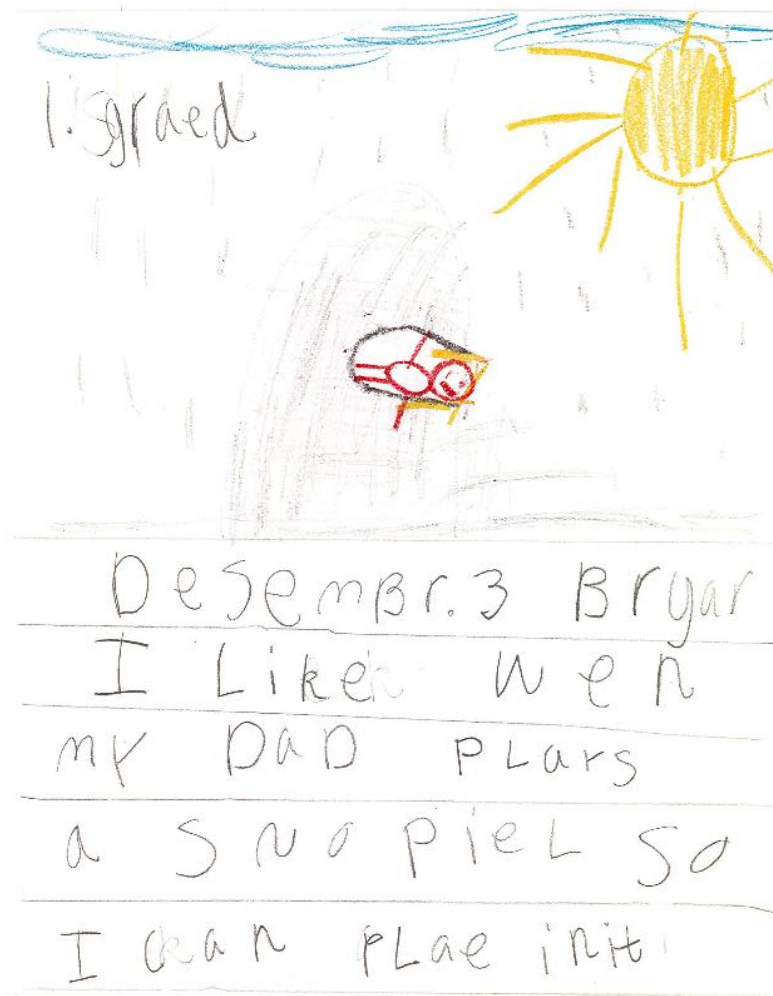 1. graed
DeSemBr. 3 Bryar
I Like wen
my DaD PLars
a SNo PieL So
I can PLae init